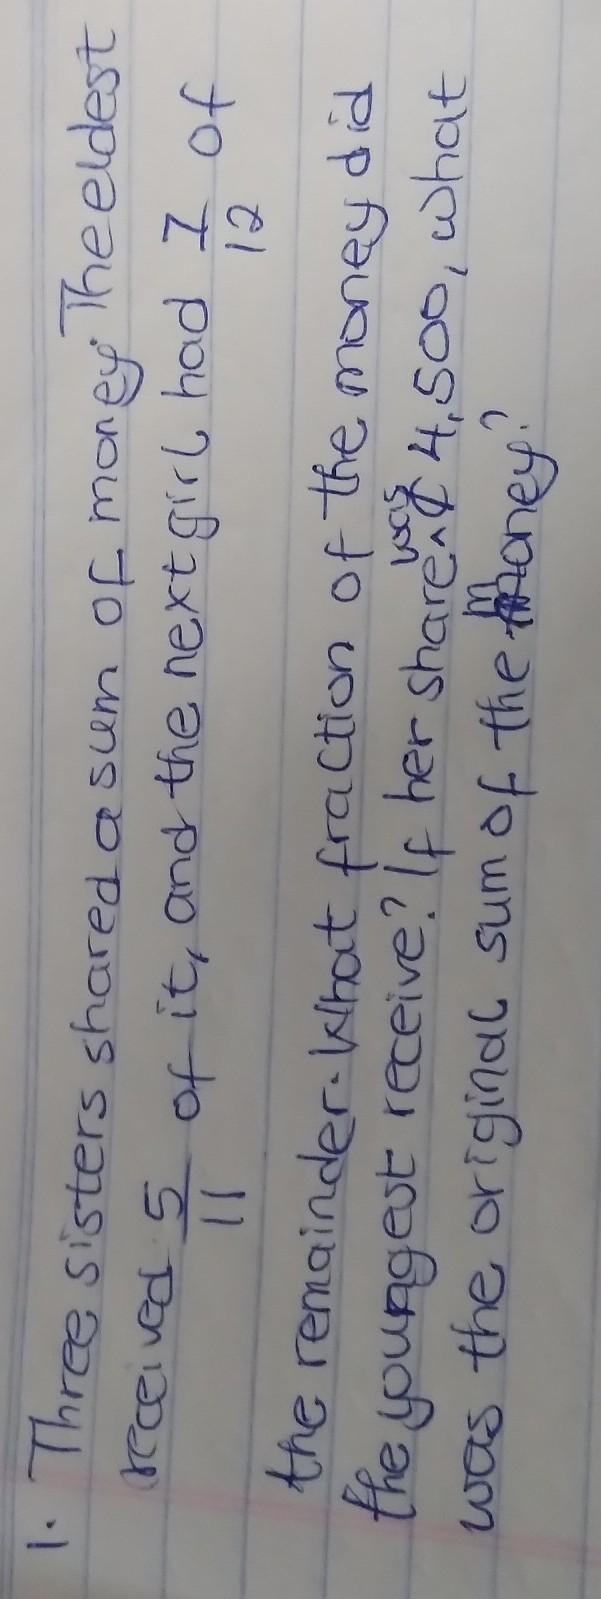 1. Three sisters shared a sum of money. The eldest
received 5/11 of it, and the next girl had 7/12 of
the remainder. What fraction of the money did
the youngest receive? If her share was ₵ 4,500, what
was the original sum of the money?